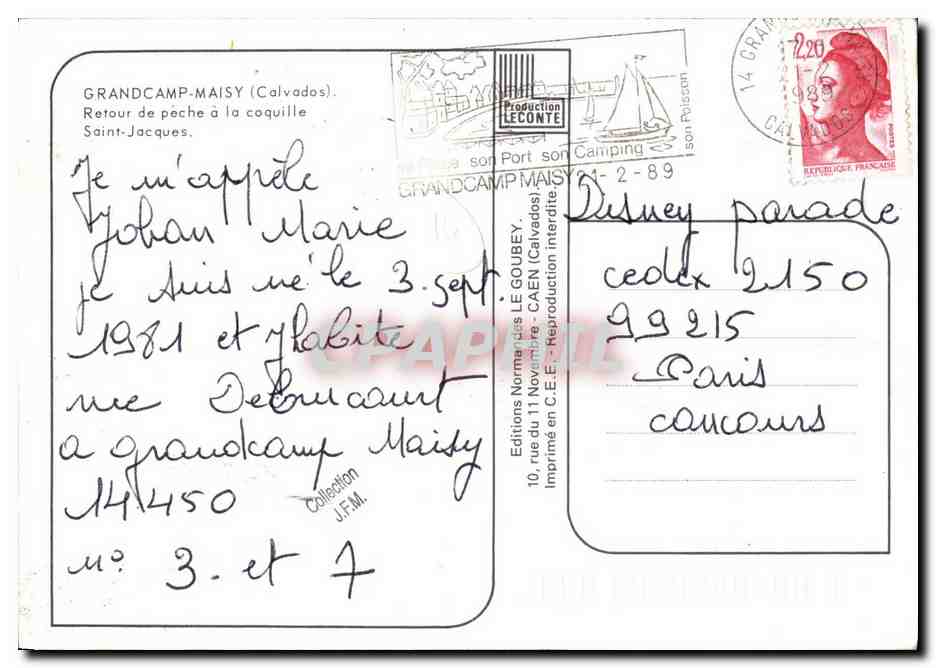 GRANDCAMP-MAISY (Calvados).
Retour de pêche à la coquille
Saint-Jacques.
Je m'appèle
Johan Marie
je suis né le 3. sept.
1981 et J'habite
rue Debucourt
a grandcamp Maisy
14450
N° 3. et 7
Collection
J.F.M.
Production
LECONTE
son Port son Camping
son Poisson
GRANDCAMP MAISY 21-2-89
Editions Normandes LE GOUBEY.
10, rue du 11 Novembre - CAEN (Calvados).
Imprimé en C.E.E. - Reproduction interdite.
14 GRAN
CALVADOS
2,20
POSTES
REPUBLIQUE FRANÇAISE
Disney parade
cedex 2150
99215
Paris
concours
CPAPHIL